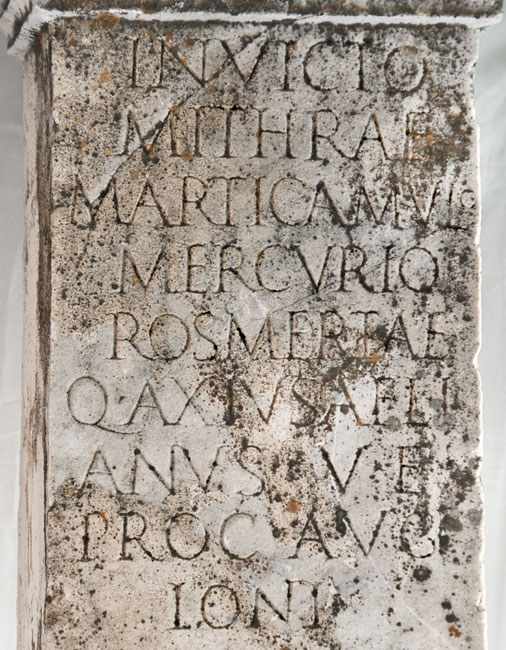 INVICTO
MITHRAE
MARTI CAMVLO
MERCVRIO
ROSMERTAE
Q·AXIVS AELI
ANVS V E
PROC AVG
IONI